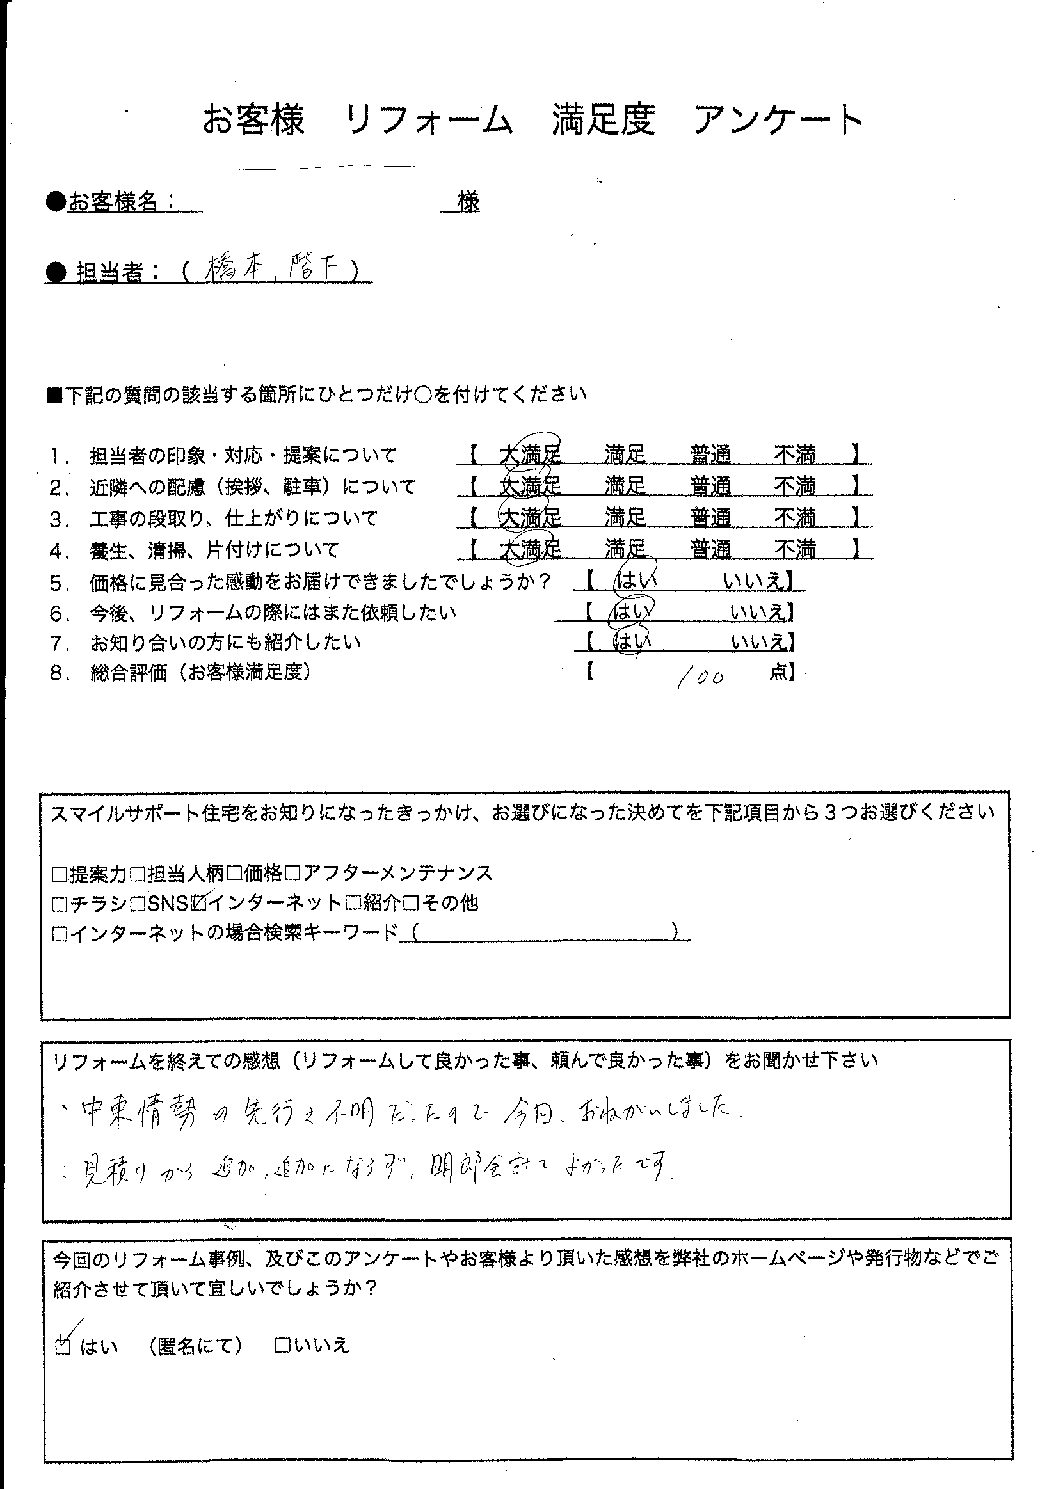 お客様　リフォーム　満足度　アンケート
●お客様名：　　　　　　様
● 担当者：（ 橋本, 階下 ）
■下記の質問の該当する箇所にひとつだけ○を付けてください
1． 担当者の印象・対応・提案について　【　大満足　満足　普通　不満　】
2． 近隣への配慮（挨拶、駐車）について　【　大満足　満足　普通　不満　】
3． 工事の段取り、仕上がりについて　【　大満足　満足　普通　不満　】
4． 養生、清掃、片付けについて　【　大満足　満足　普通　不満　】
5． 価格に見合った感動をお届けできましたでしょうか？　【　はい　いいえ】
6． 今後、リフォームの際にはまた依頼したい　【　はい　いいえ】
7． お知り合いの方にも紹介したい　【　はい　いいえ】
8． 総合評価（お客様満足度）　【　100　点】
スマイルサポート住宅をお知りになったきっかけ、お選びになった決めてを下記項目から３つお選びください
□提案力□担当人柄□価格□アフターメンテナンス
□チラシ□SNS☑インターネット□紹介□その他
□インターネットの場合検索キーワード（　　　　　　）
リフォームを終えての感想（リフォームして良かった事、頼んで良かった事）をお聞かせ下さい
・中東情勢の先行き不明だったので今回、おねがいしました。
・見積りから追加、追加にならず、明朗会計でよかったです。
今回のリフォーム事例、及びこのアンケートやお客様より頂いた感想を弊社のホームページや発行物などでご
紹介させて頂いて宜しいでしょうか？
☑はい　（匿名にて）　□いいえ